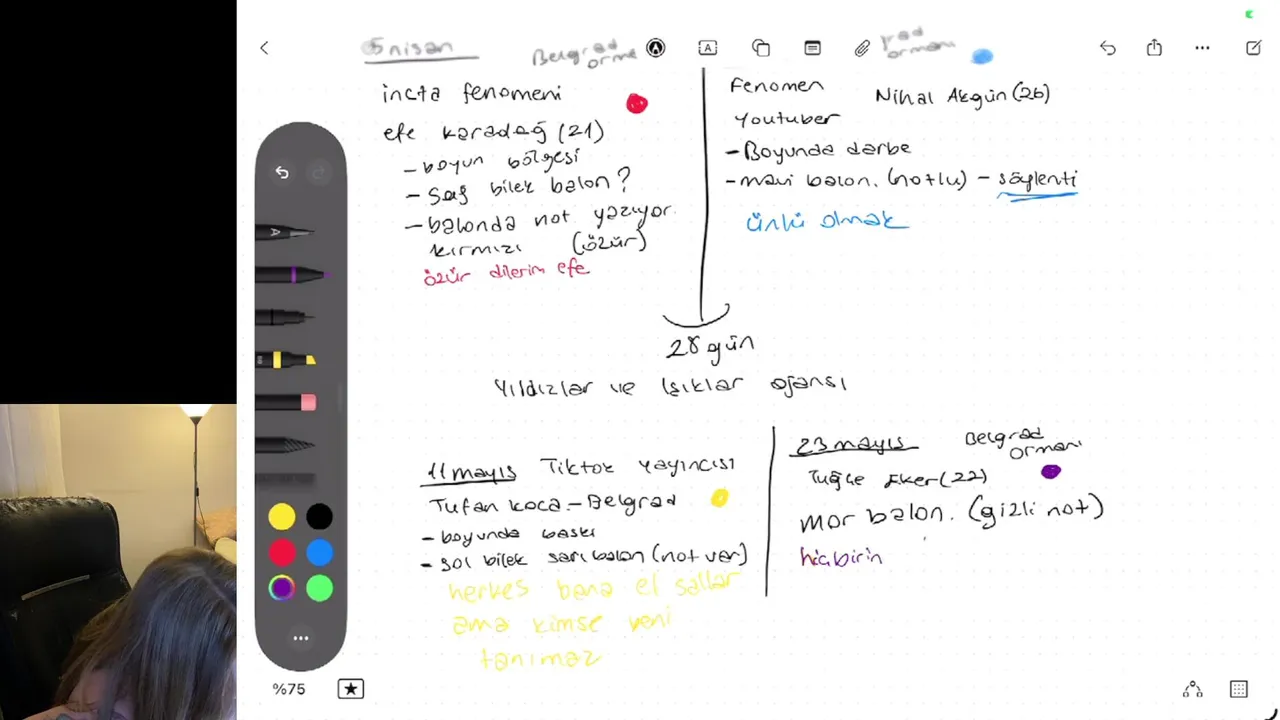 5 nisan
Belgrad
orma
rad
ormanı
incta fenomeni
efe karadağ (21)
- boyun bölgesi
- sağ bilek balon?
- balonda not yazıyor.
kırmızı (özür)
özür dilerim efe
Fenomen
Youtuber
Nihal Akgün (26)
- Boyunda darbe
- mavi balon. (notlu) - söylenti
ünlü olmak
28 gün
Yıldızlar ve Işıklar ajansı
11 mayıs Tiktok yayıncısı
Tufan Koca - Belgrad
- boyunda baskı
- sol bilek sarı balon (not var)
herkes bana el sallar
ama kimse yeni
tanımaz
23 mayıs
Belgrad
ormanı
Tuğçe Eker (22)
mor balon. (gizli not)
hiçbirin
%75